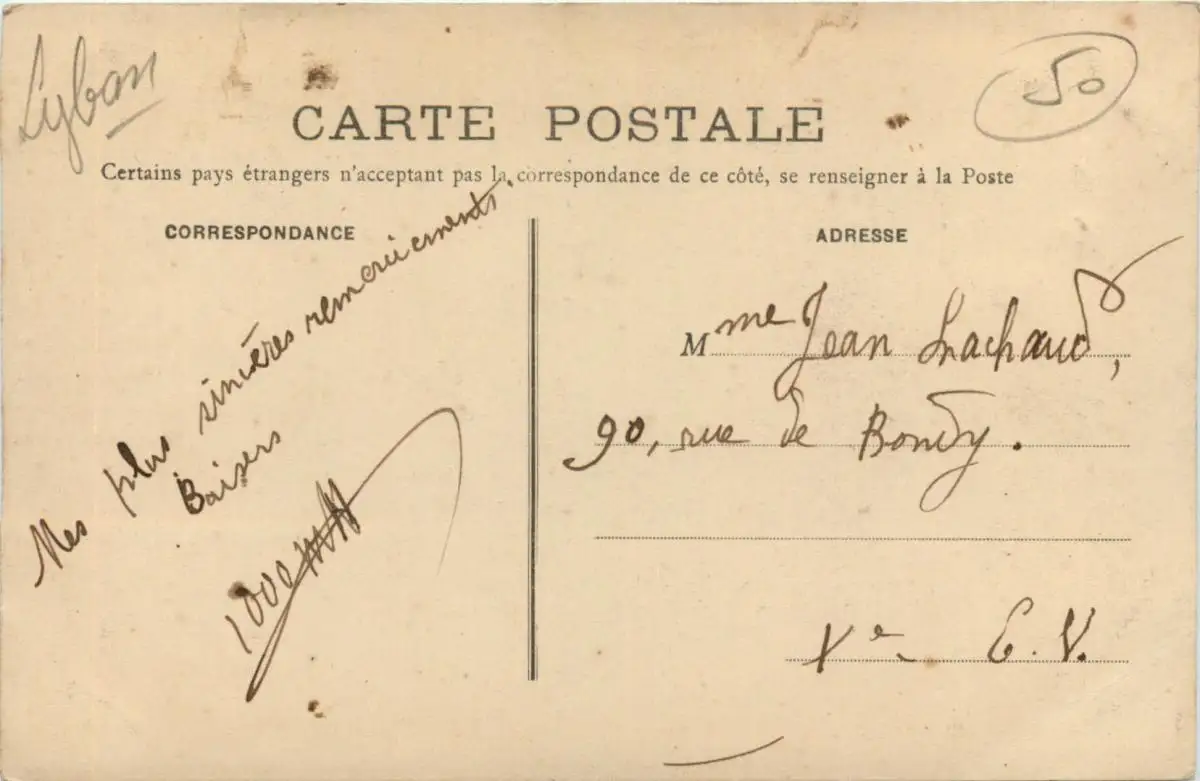 Lyban
50
CARTE POSTALE
Certains pays étrangers n'acceptant pas la correspondance de ce côté, se renseigner à la Poste
CORRESPONDANCE
Mes plus sincères remerciements
Baisers
ADRESSE
Mme Jean Lachaud,
90, rue de Bondy.
Xe E. V.